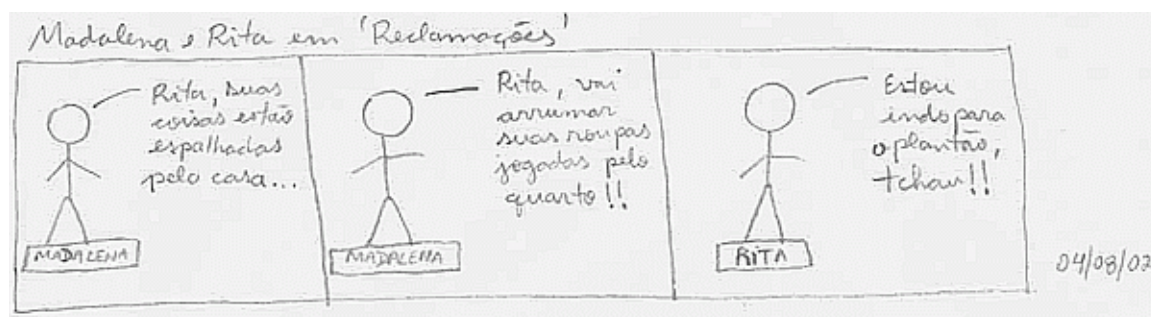 Madalena e Rita em 'Reclamações'
Rita, suas
coisas estão
espalhadas
pela casa...
MADALENA
Rita, vai
arrumar
suas roupas
jogadas pelo
quarto!!
MADALENA
Estou
indo para
o plantão,
tchau!!
RITA
04/08/02